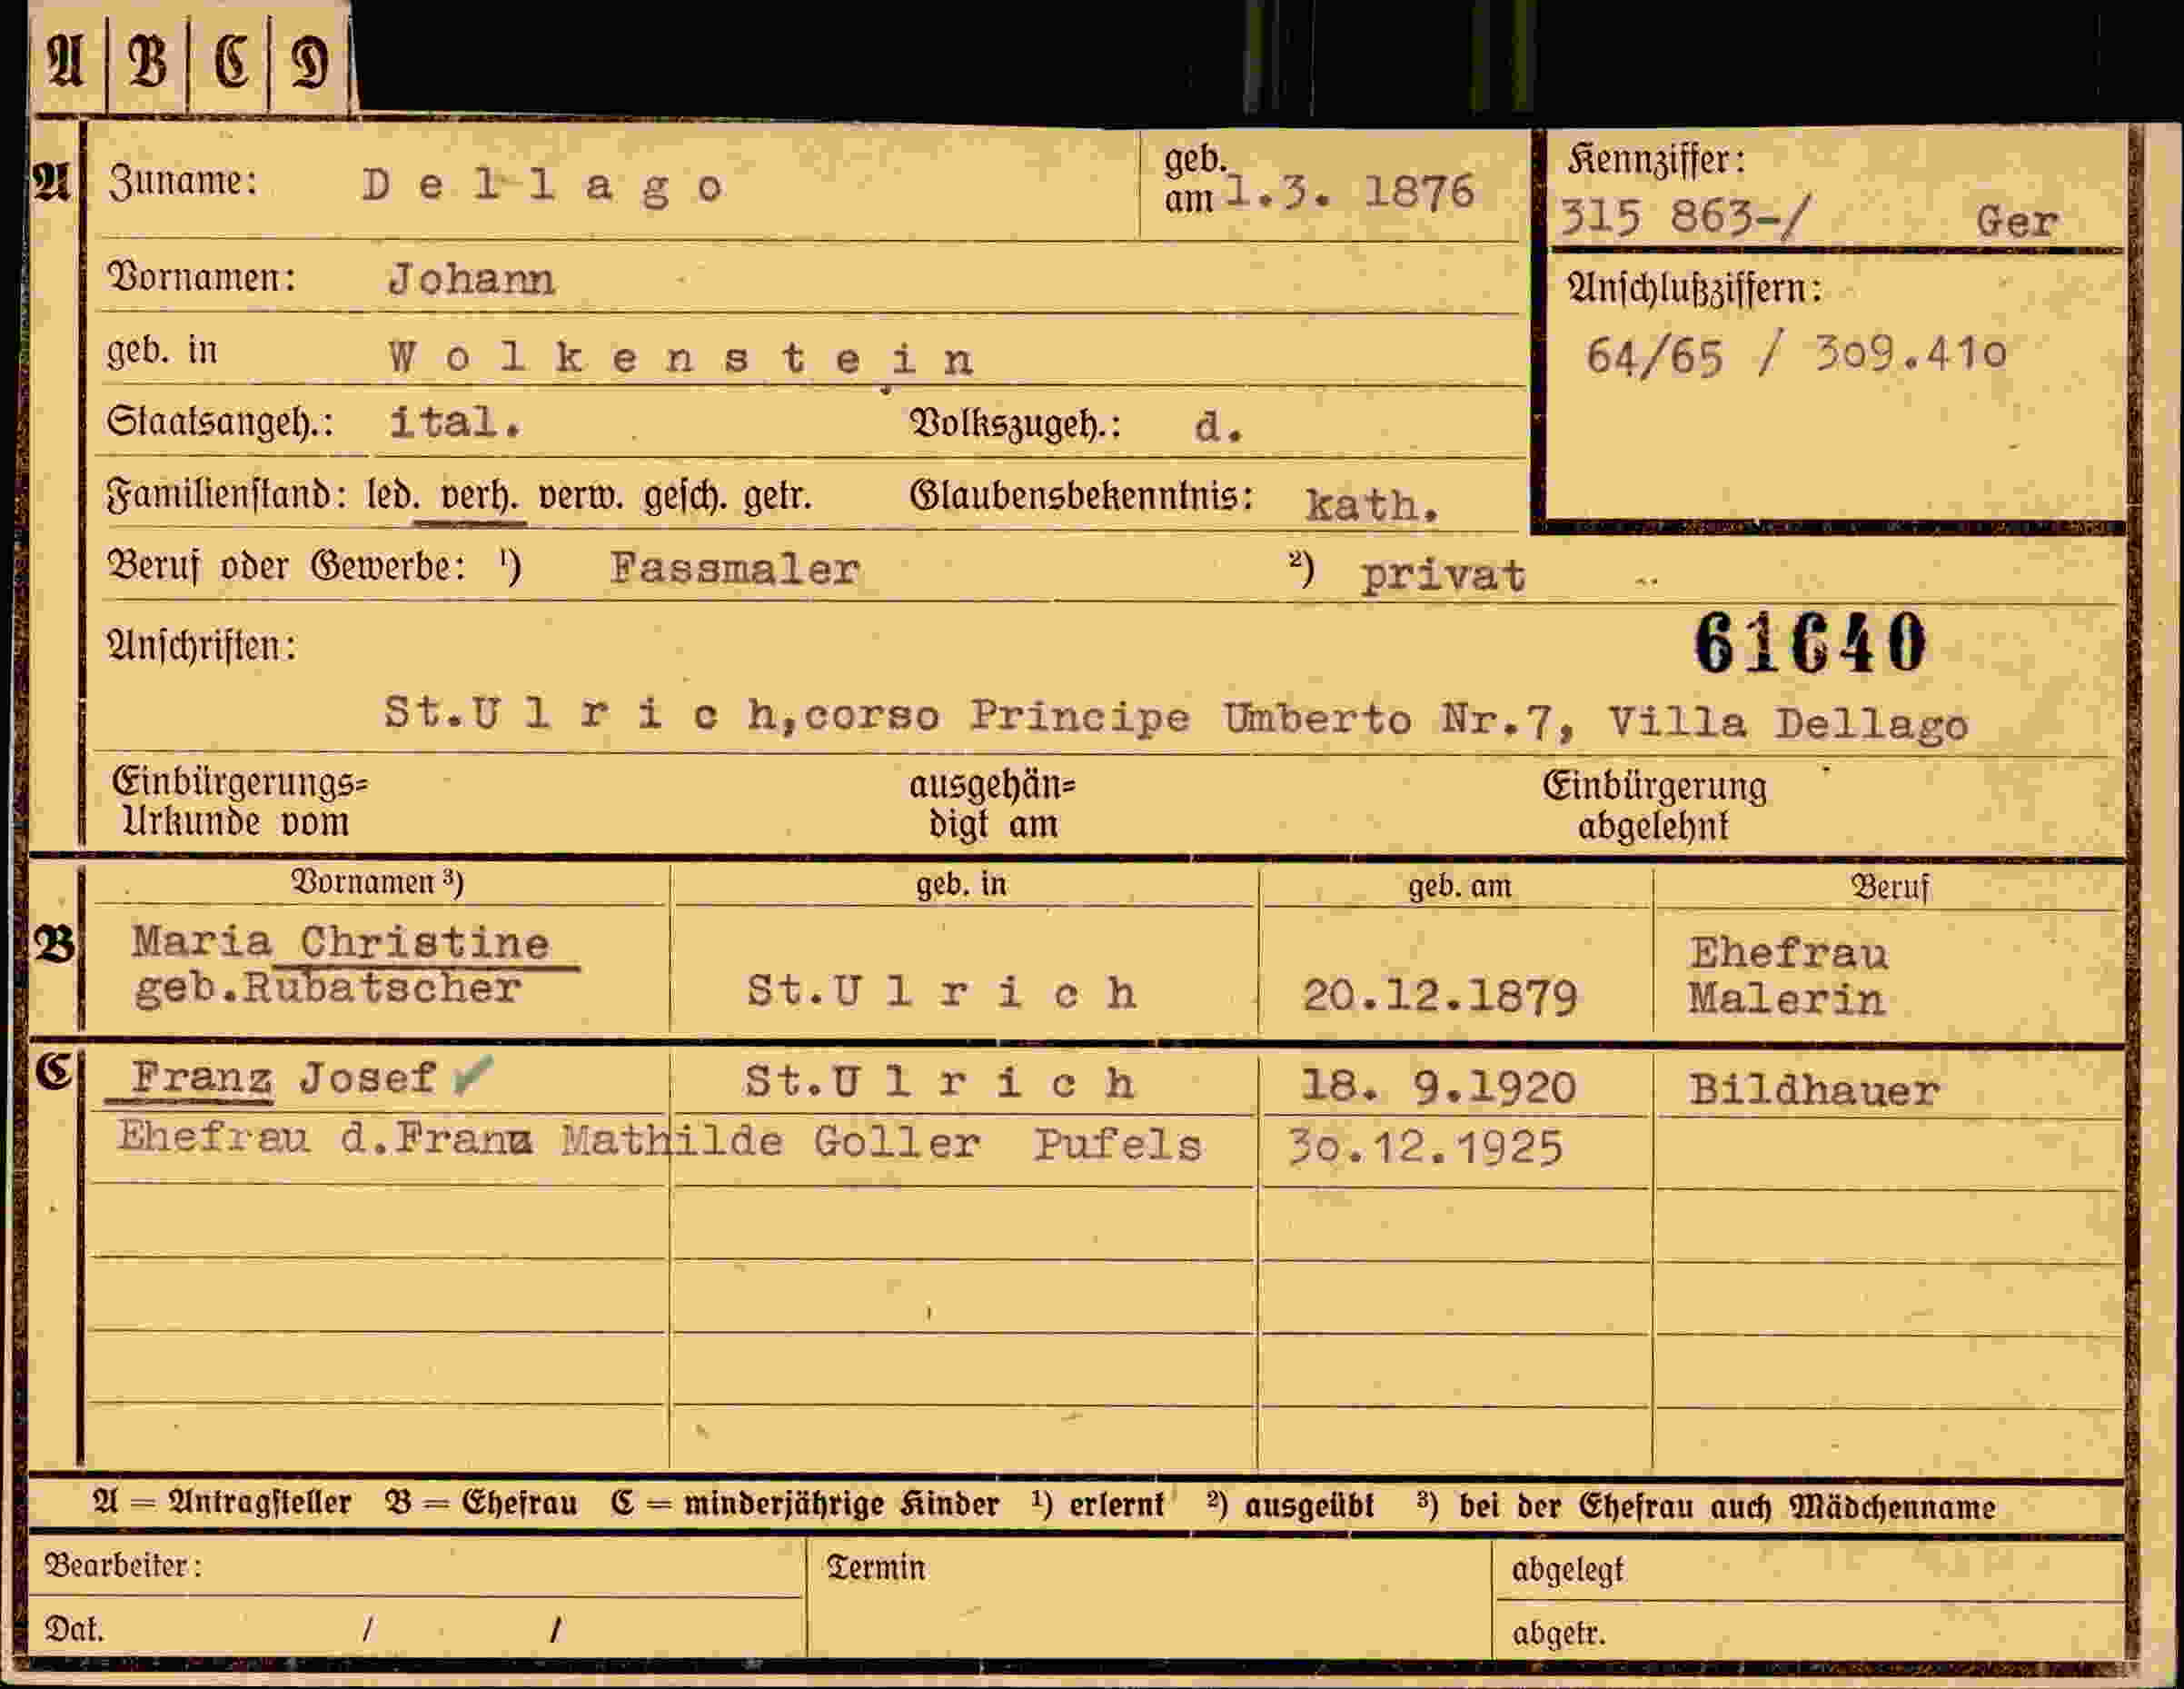 A B C D
A Zuname: Dellago geb. am 1.3. 1876
Kennziffer:
315 863-/ Ger
Vornamen: Johann
Anschlußziffern:
geb. in Wolkenstein
64/65 / 309.410
Staatsangeh.: ital. Volkszugeh.: d.
Familienstand: led. verh. verw. gesch. getr. Glaubensbekenntnis: kath.
Beruf oder Gewerbe: ¹) Fassmaler ²) privat
Anschriften: 61640
St.Ulrich,corso Principe Umberto Nr.7, Villa Dellago
Einbürgerungs= ausgehän= Einbürgerung
Urkunde vom digt am abgelehnt
Vornamen ³) geb. in geb. am Beruf
B Maria Christine Ehefrau
geb.Rubatscher St.Ulrich 20.12.1879 Malerin
C Franz Josef ✓ St.Ulrich 18. 9.1920 Bildhauer
Ehefrau d.Franz Mathilde Goller Pufels 30.12.1925
A = Antragsteller B = Ehefrau C = minderjährige Kinder ¹) erlernt ²) ausgeübt ³) bei der Ehefrau auch Mädchenname
Bearbeiter: Termin abgelegt
Dat. / / abgetr.